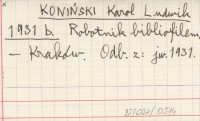 KONIŃSKI Karol Ludwik
1931 b. Robotnik bibliofilem.
– Kraków. Odb. z: jw. 1931.